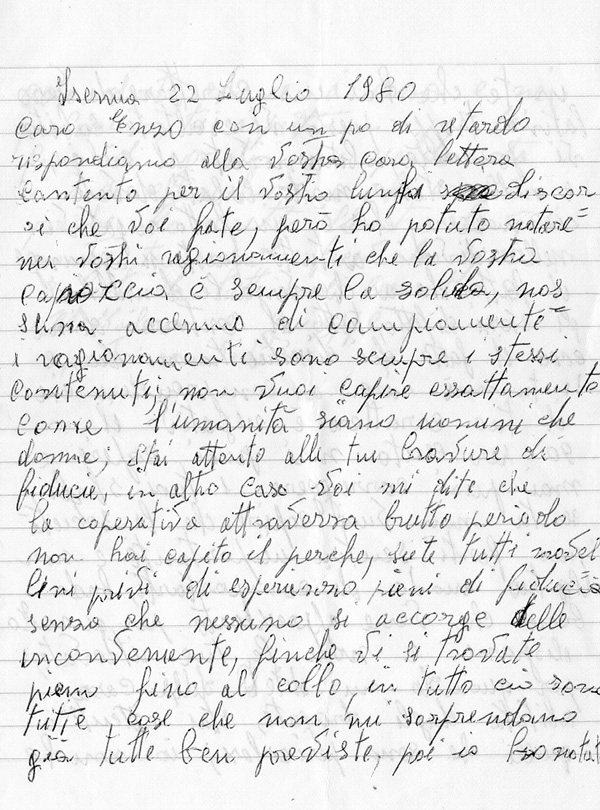 Isernia 22 Luglio 1980
Caro Enzo con un po di ritardo
rispondiamo alla Vostra cara lettera
contento per il Vostro lungo discor
si che voi fate, però ho potuto notare
nei Vostri ragionamenti che la vostra
capoccia è sempre la solida, nos
suna accenno di campiamente
i ragionamenti sono sempre i stessi
contenuti, non vuoi capire esattamente
come l'umanità siano uomini che
donne; stai attento alle tue bravure di
fiducia, in altro caso voi mi dite che
la coperativa attraversa brutto periodo
non hai capito il perche, siete tutti novel
lini privi di esperienza pieni di fiducia
senza che nessuno si accorge delle
inconvemente, finche vi si trovate
pieni fino al collo, in tutto ciò sono
tutte cose che non mi sorprendano
gia tutte ben previste, poi io ho notat